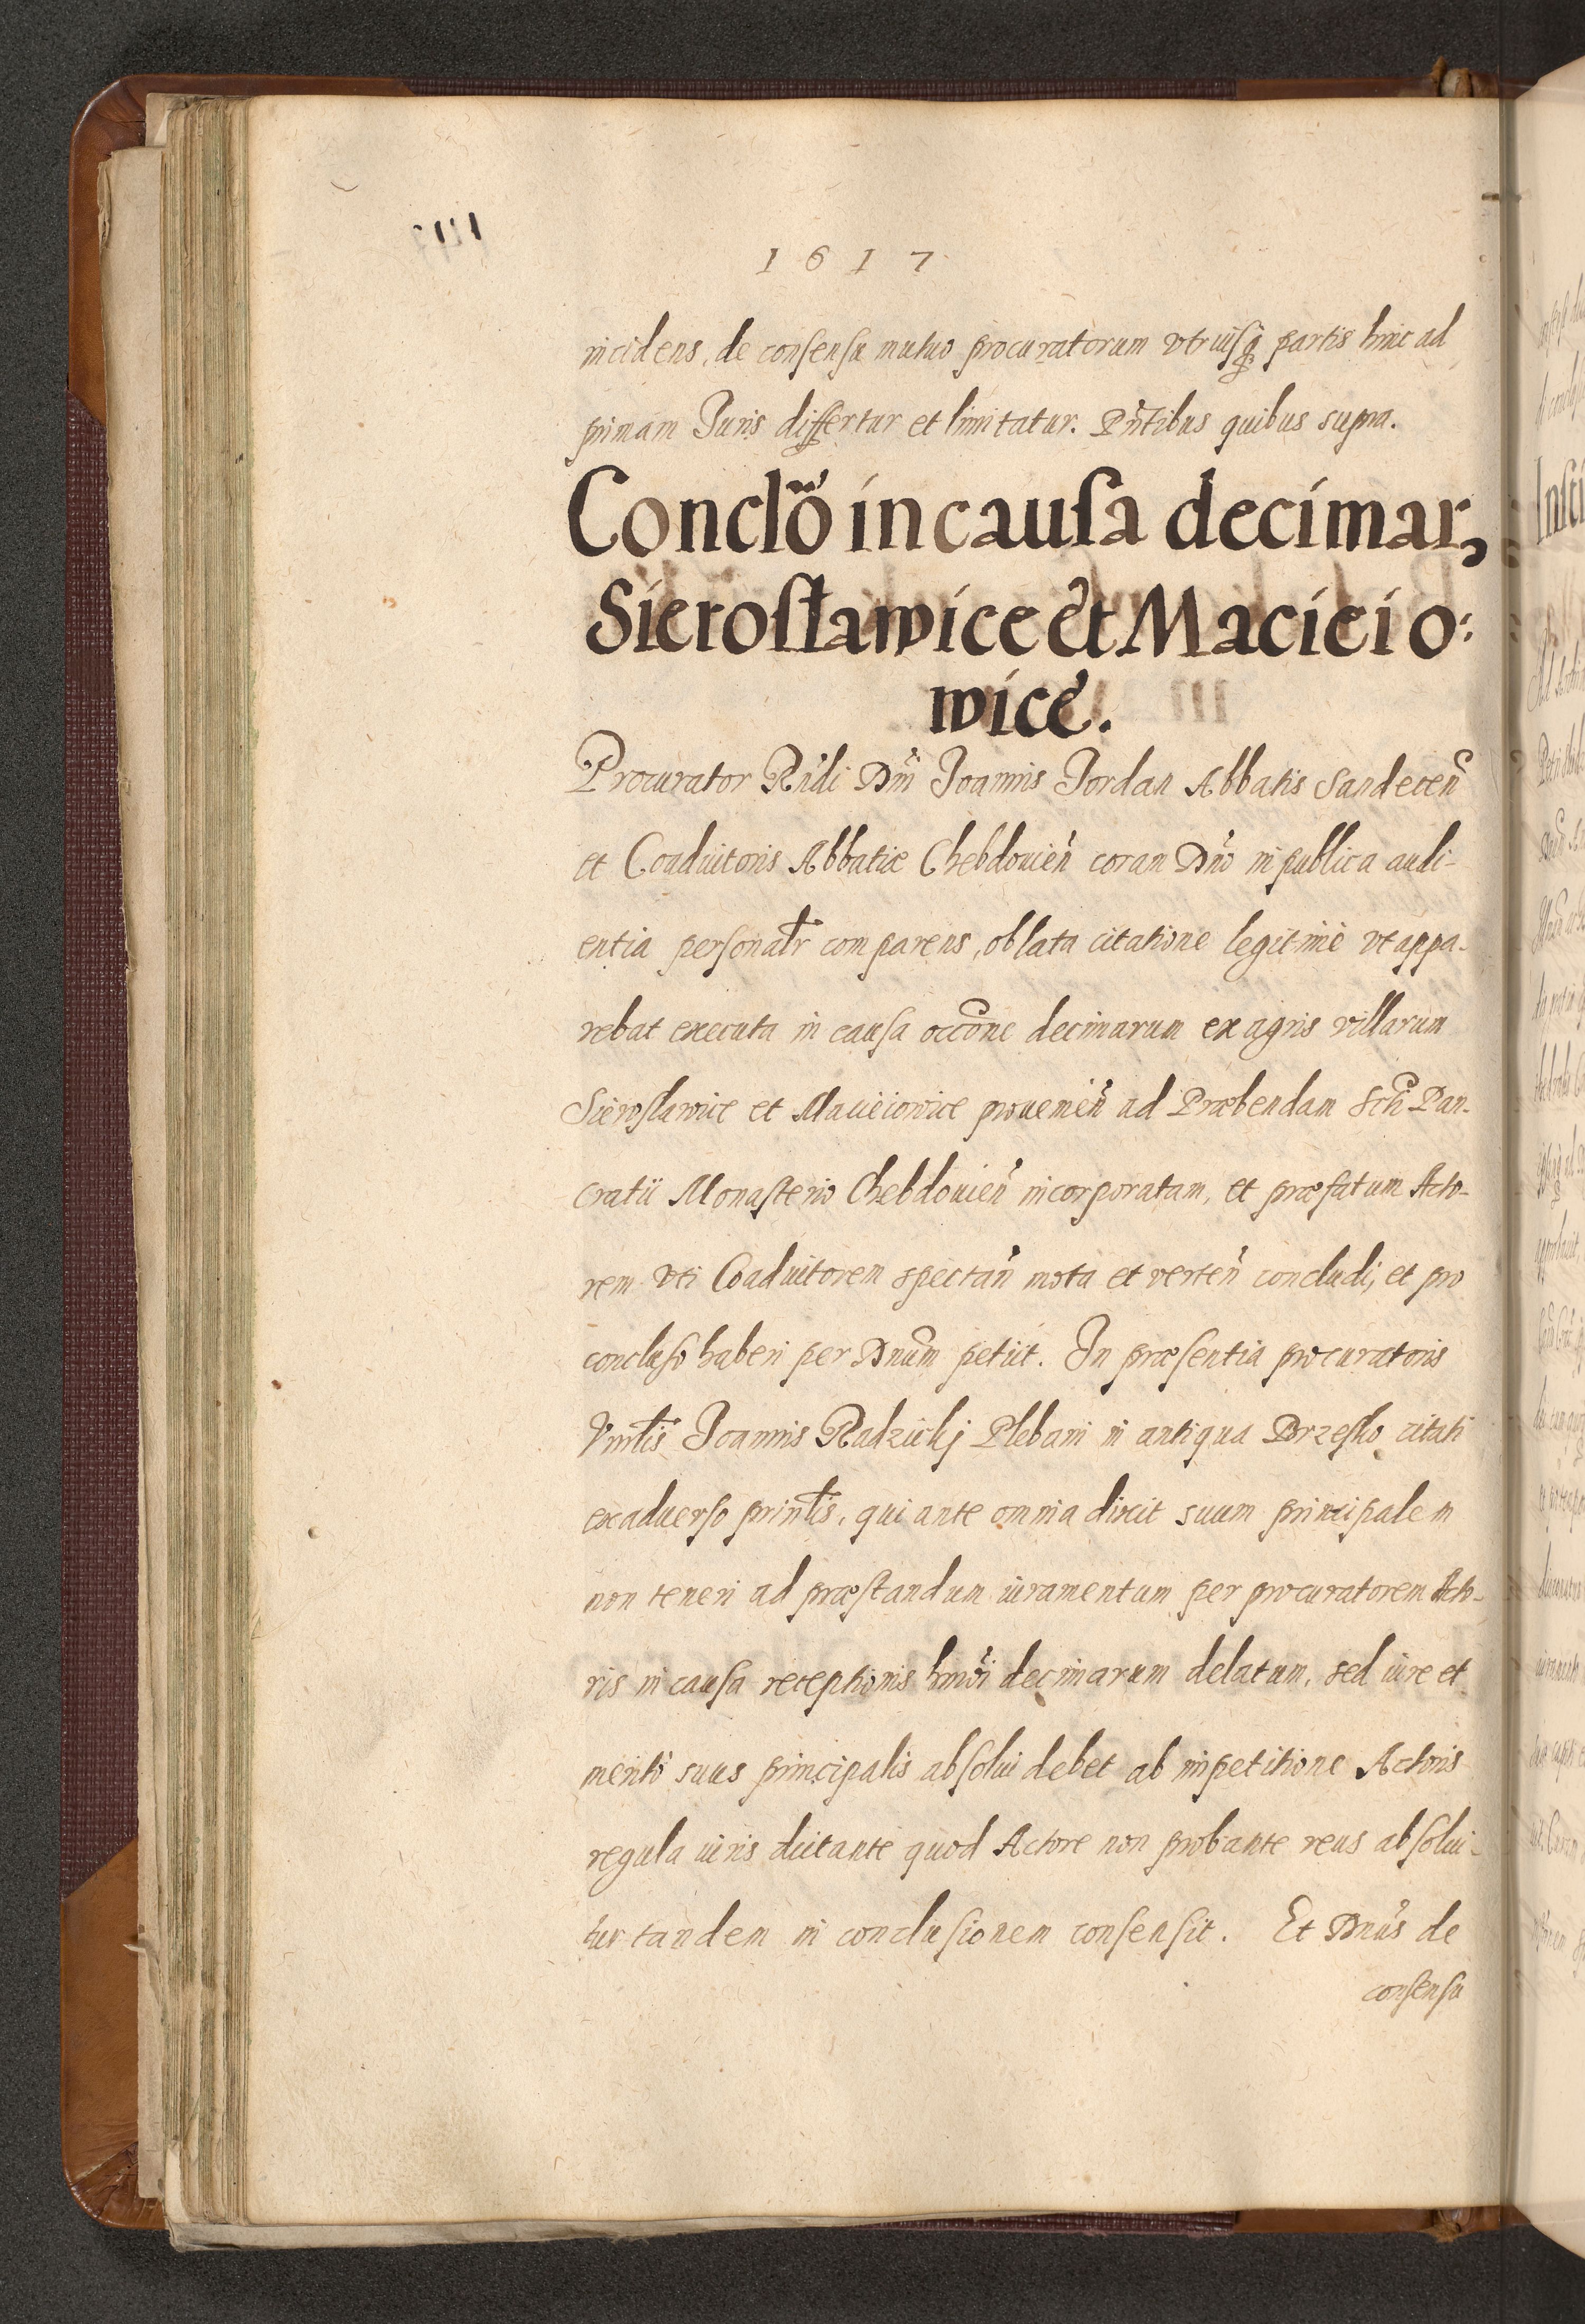 1617
incidens, de consensu mutuo procuratorum vtriusq₃ partis hinc ad
primam Juris differtur et limitatur. Pn̄tibus quibus supra.
Conclō in causa decimar,
Sierosławice et Macieio:
wice.
Procurator Rn̄di Dn̄i Joannis Jordan Abbatis Sandecen̄
et Coadiutoris Abbatiæ Chebdouien̄ coram Dn̄o in publica audi-
entia personalr̄ comparens, oblata citatione legitimè vt appa-
rebat executa in causa occōne decimarum ex agris villarum
Sierosławice et Macieiowice prouenien̄ ad Præbendam Scti Pan-
cratii Monasterio Chebdouien̄ incorporatam, et præfatum Acto-
rem vti Coadiutorem spectan̄ mota et verten̄ concludi, et pro
concluso haberi per Dn̄um petiit. In præsentia procuratoris
Vn̄blis Joannis Radzickj Plebani in antiqua Brzesko citati
ex aduerso prin̄lis, qui ante omnia dixit suum principalem
non teneri ad præstandum iuramentum per procuratorem Acto-
ris in causa receptionis hmōi decimarum delatum, sed iure et
meritò suus principalis absolui debet ab impetitione Actoris
regula iuris dictante quod Actore non probante reus absolui-
tur tandem in conclusionem consensit. Et Dn̄us de
consensu